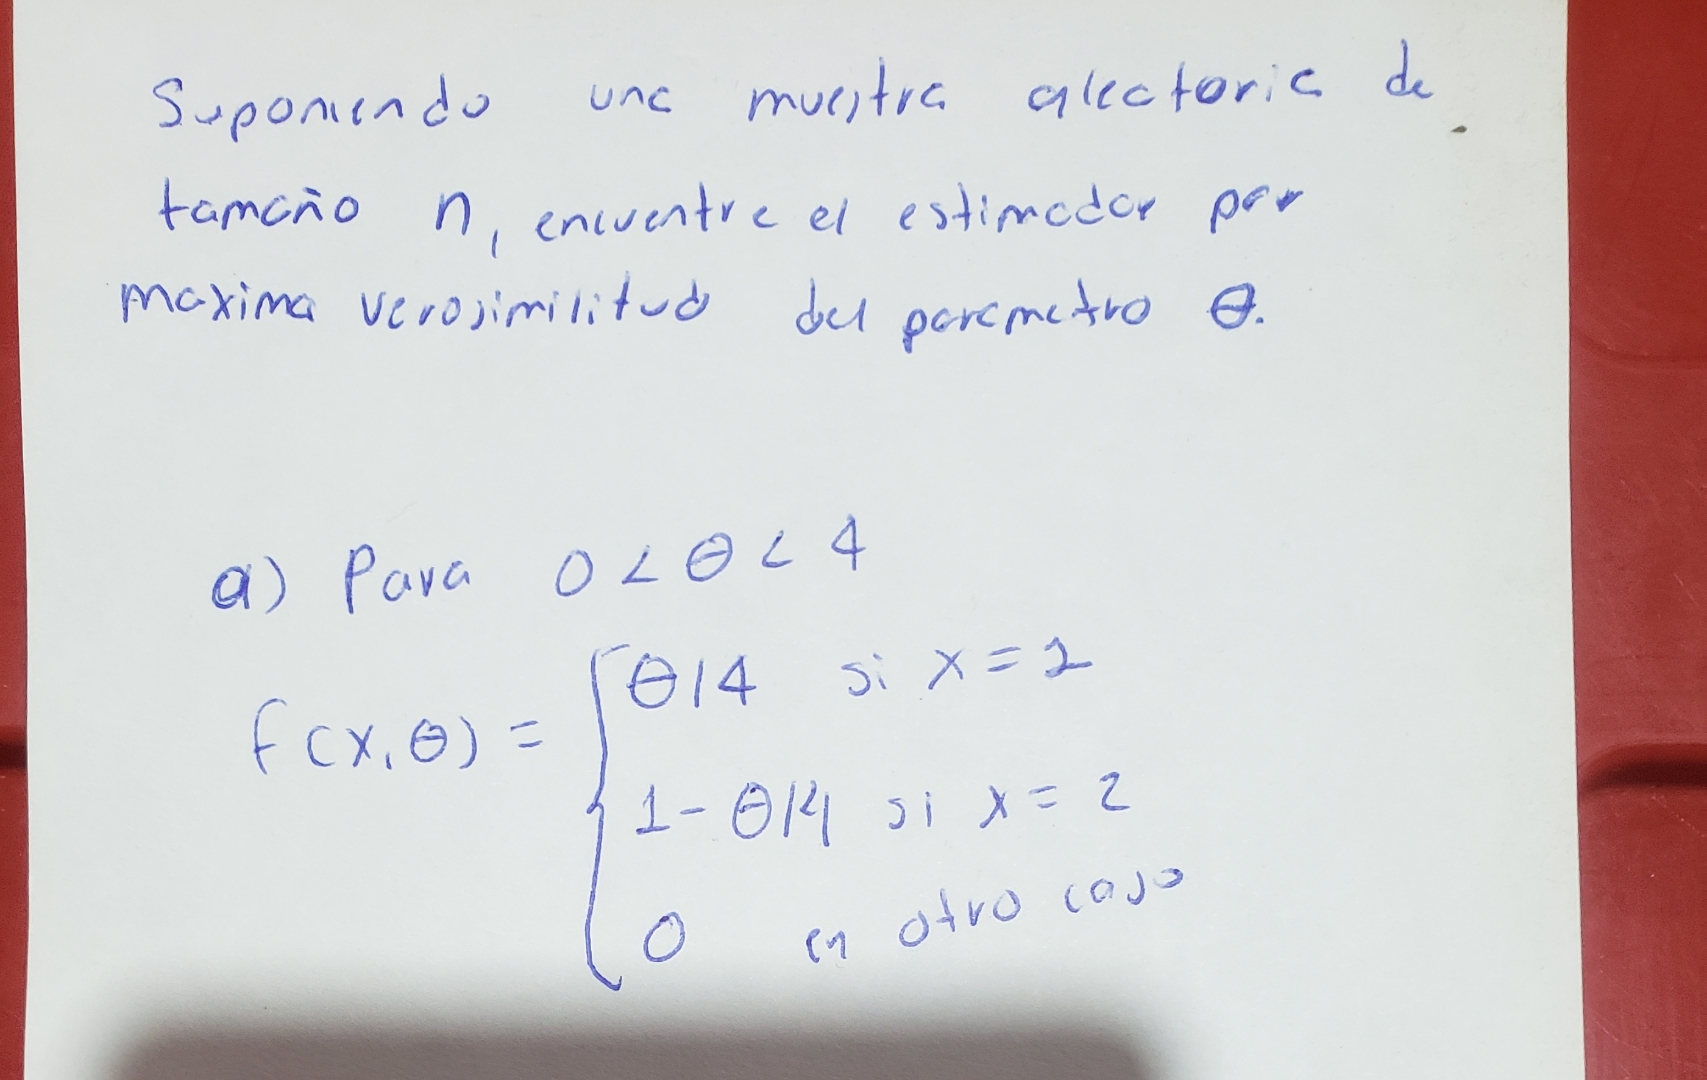 Suponiendo una muestra aleatoria de
tamaño n, encuentre el estimador por
maxima verosimilitud del parametro θ.
a) Para 0 < θ < 4
f(x,θ) = { θ/4 si x = 1
1 - θ/4 si x = 2
0 en otro caso